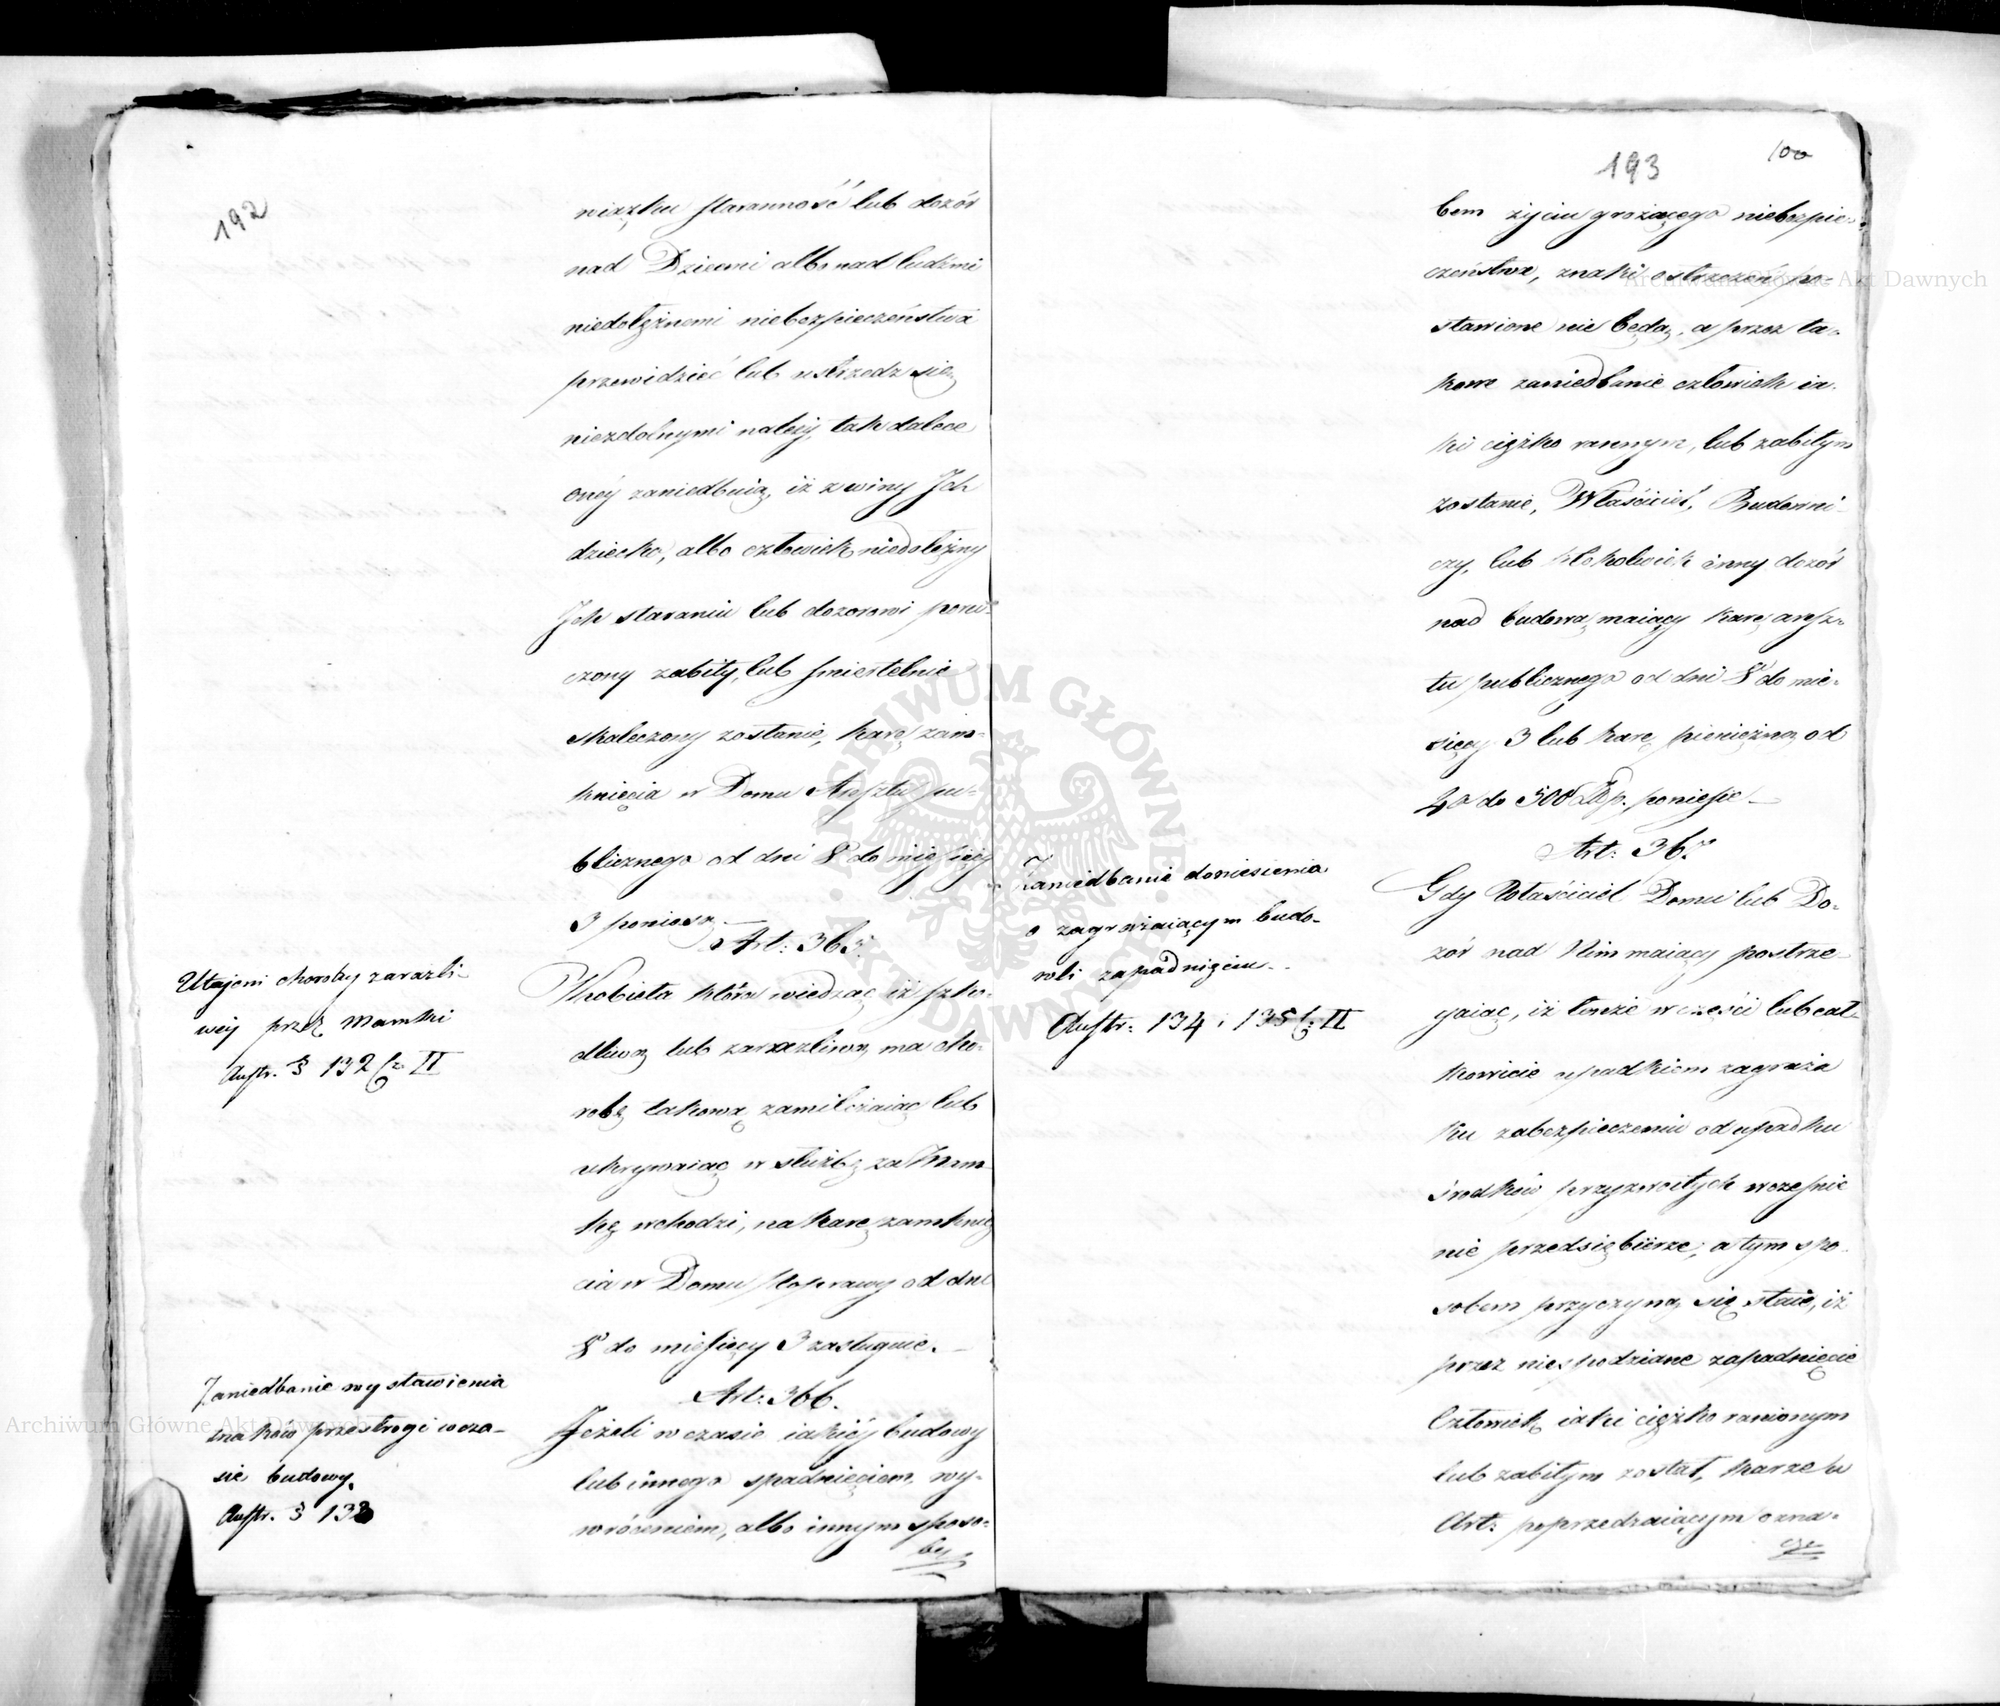 192
niązku staranność lub dozór
nad Dziecmi albo nad ludźmi
niedołężnemi niebezpieczeństwa
przewidzieć lub ustrzedz się
niezdolnymi należy, tak dalece
oney zaniedbuią, iż z winy Ich
dziecko, albo człowiek niedołężny
Ich staraniu lub dozorowi poru-
czony zabity, lub śmiertelnie
skaleczony zostanie, karę zam-
knięcia w Domu Aresztu pu-
blicznego od dni 8 do miesięcy
3 poniosą.
Art: 365.
Utajeni choroby zaraźli-
wey przez Mamki
Austr. § 132 Cz. II
Kobieta która wiedząc, iż szko-
dliwą lub zaraźliwą ma cho-
robę takową zamilczaiąc lub
ukrywaiąc w służbę za Mam-
kę wchodzi, na karę zamknię
cia w Domu Poprawy od dni
8 do miesięcy 3 zasługuie.
Art: 366.
Zaniedbanie wystawienia
znaków przestrogi w cza-
sie budowy.
Austr. § 133
Jeżeli w czasie iakiéj budowy
lub innego spadnięciem, wy-
wróceniem, albo innym sposo-
by
193
100
bem życiu grożącego niebezpie-
czeństwa, znaki ostrzeżeń po-
stawione nie będą, a przez ta-
kowe zaniedbanie człowiek ia-
ki ciężko rannym, lub zabitym
zostanie, Właściciel, Budowni-
czy, lub ktokolwiek inny dozór
nad budową maiący karę aresz-
tu publicznego od dni 8 do mie-
sięcy 3 lub karę pieniężną od
20 do 500 Złp. poniesie
Art: 367
Zaniedbanie doniesienia
o zagrażaiącym budo-
wli zapadnięciu.
Austr: 134 i 135 Cz. II
Gdy Właściciel Domu lub Do-
zór nad Nim maiący postrze-
gaiąc, iż tenże w części lub cał-
kowicie upadkiem zagraża
ku zabezpieczeniu od upadku
środków przyzwoitych wcześnie
nie przedsiębierze; a tym spo-
sobem przyczyną się staie, iż
przez niespodziane zapadnięcie
Człowiek iaki ciężko ranionym
lub zabitym został, karze w
Art: poprzedzaiącym ozna-
cze
Archiwum Główne Akt Dawnych
Archiwum Główne Akt Dawnych
ARCHIWUM GŁÓWNE
AKT DAWNYCH